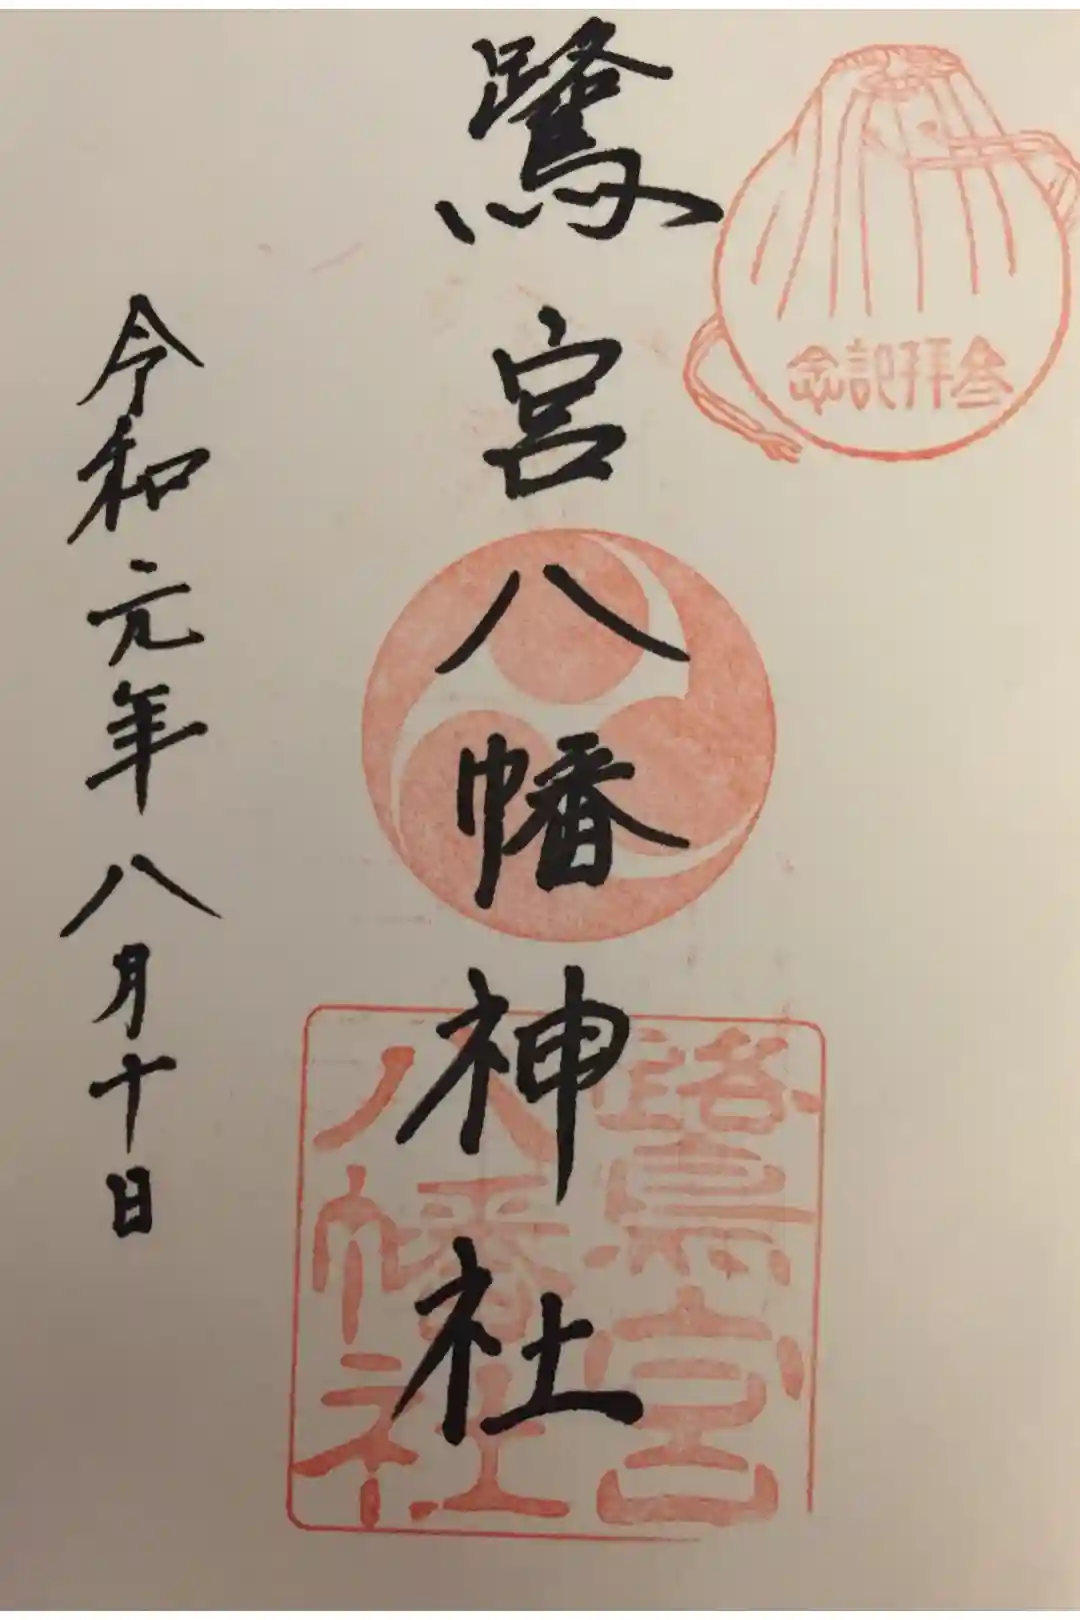 念記拝参
鷺宮八幡神社
鷺宮
八幡社
令和元年八月十日